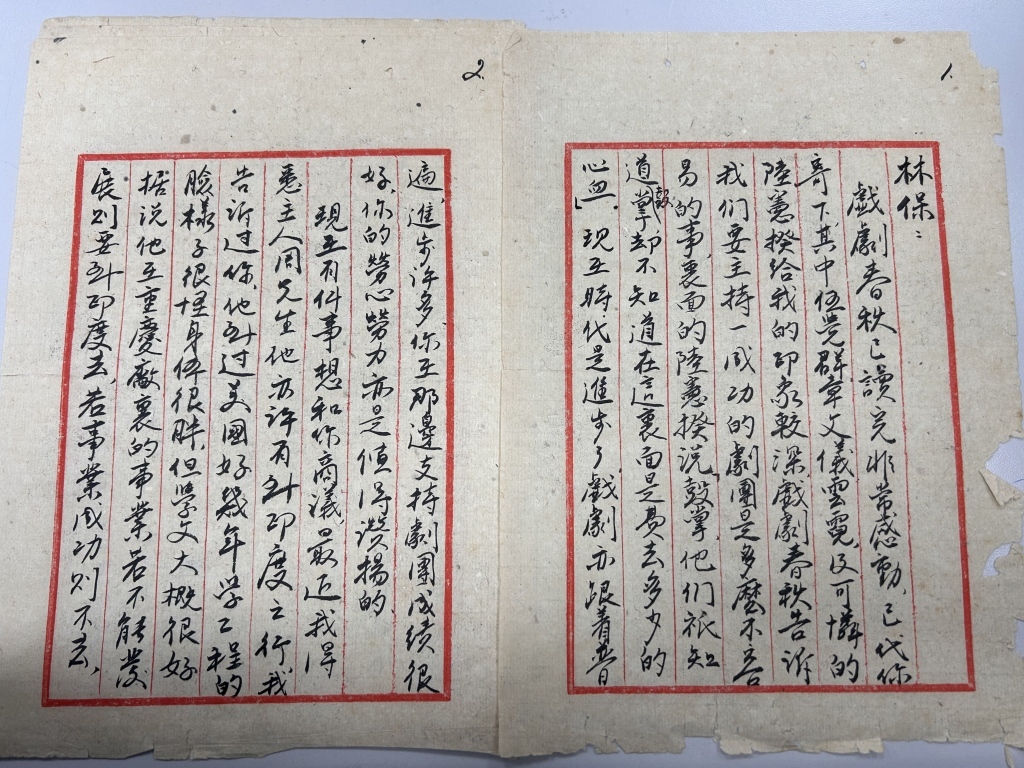 1.
林保：
戲劇春秋已讀完非常感動，已代你
寄下其中伍覺群章文儀雲霓，及可憐的
陸憲揆給我的印象較深戲劇春秋告訴
我们要主持一成功的劇團是多麼不容
易的事，裏面的陸憲揆说「鼓掌，他们祇知
道鼓掌却不知道在這裏面是費去多少的
心血」，现在時代是進步了，戲劇亦跟着普
2.
遍，進步许多，你在那邊支持劇團成績很
好，你的勞心勞力亦是值得讚揚的
現在有件事想和你商議，最近我得
悉主人周先生他亦许有到印度之行，我
告诉过你，他到过美國好幾年学工程的
臉様子很怪身体很胖，但學文大概很好
据说他在重慶敵裏的事業若不能發
展则要到印度去，若事業成功则不去，